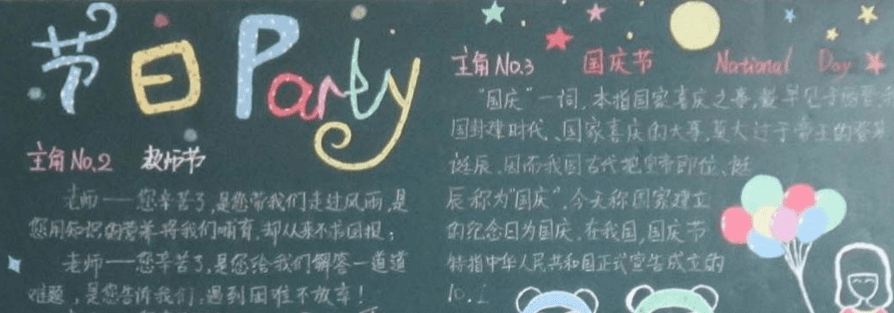 节日Party
主角No.2 教师节
老师——您辛苦了,是您带我们走过风雨,是
您用知识的营养将我们哺育,却从来不求回报;
老师——您辛苦了,是您给我们解答一道道
难题,是您告诉我们:遇到困难不放弃!
主角No.3 国庆节 National Day
"国庆"一词,本指国家喜庆之事,最早见于西晋
国封建时代、国家喜庆的大事,莫大过于帝王的登基
诞辰、因而我国古代把皇帝即位、诞
辰称为"国庆",今天称国家建立
的纪念日为国庆,在我国,国庆节
特指中华人民共和国正式宣告成立的
10.1